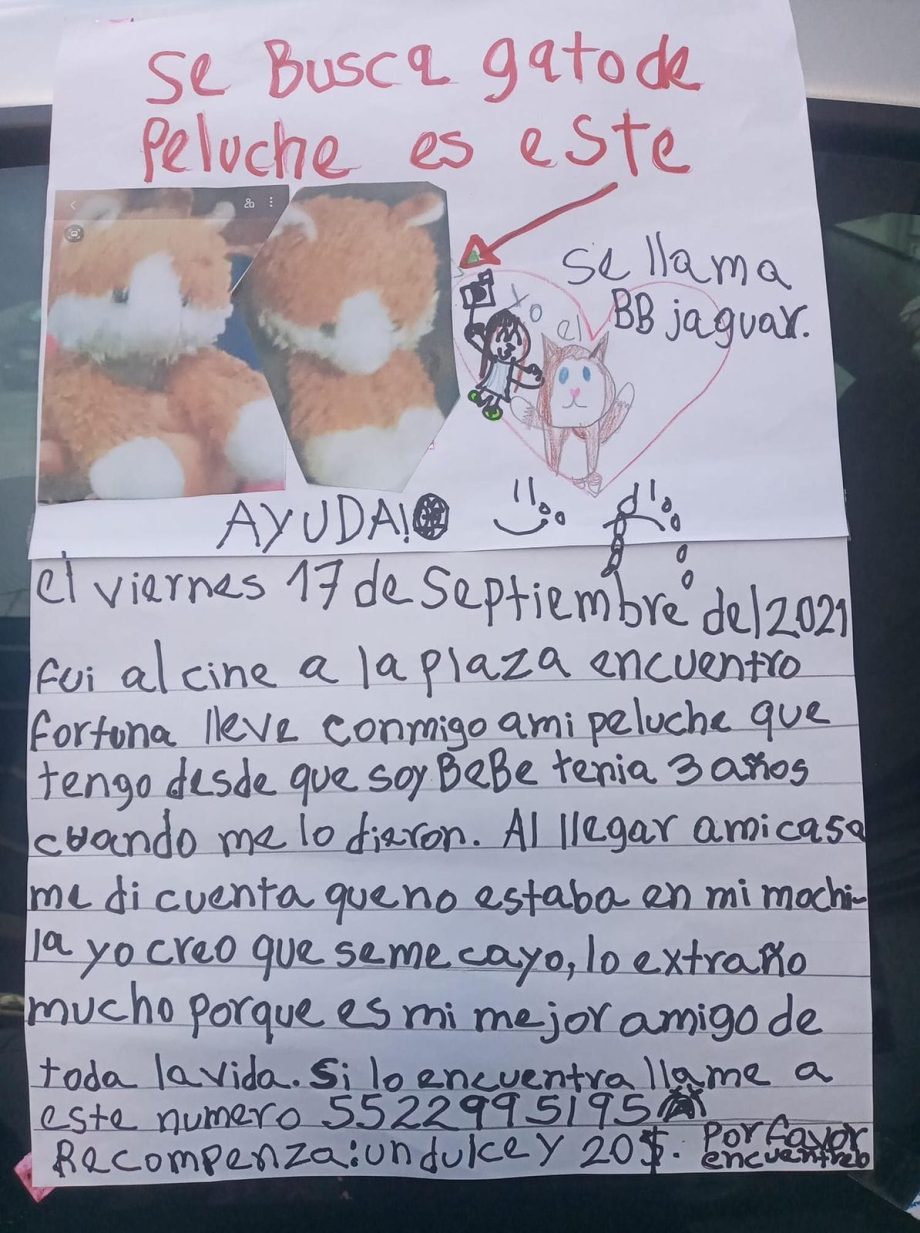 Se Busca gato de
Peluche es este
Se llama
BB jaguar.
Yo el
AYUDA!
el viernes 17 de Septiembre del 2021
fui al cine a la plaza encuentro
fortuna lleve conmigo ami peluche que
tengo desde que soy BeBe tenia 3 años
cuando me lo dieron. Al llegar ami casa
me di cuenta que no estaba en mi mochi-
la yo creo que se me cayo, lo extraño
mucho porque es mi mejor amigo de
toda la vida. Si lo encuentra llame a
este numero 5522995195
Recompenza: un dulce y 20$. Por favor
encuentrelo